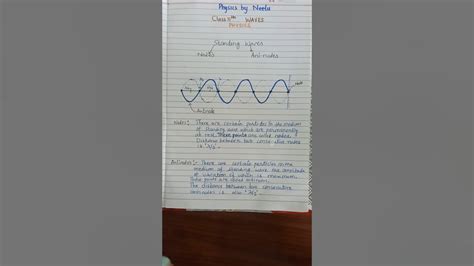 Physics by Neelu
Class 11th WAVES
PHYSICS
Standing Waves
Nodes Anti-nodes
Antinode
Nodes:- There are certain particles in the medium
of standing wave which are permanently
at rest. These points are called nodes.
Distance between two consecutive nodes
is λ/2.
Antinodes:- There are certain particles in the
medium of standing wave the amplitude
of vibration of which is maximum.
These points are called antinodes.
The distance between two consecutive
antinodes is also "λ/2".